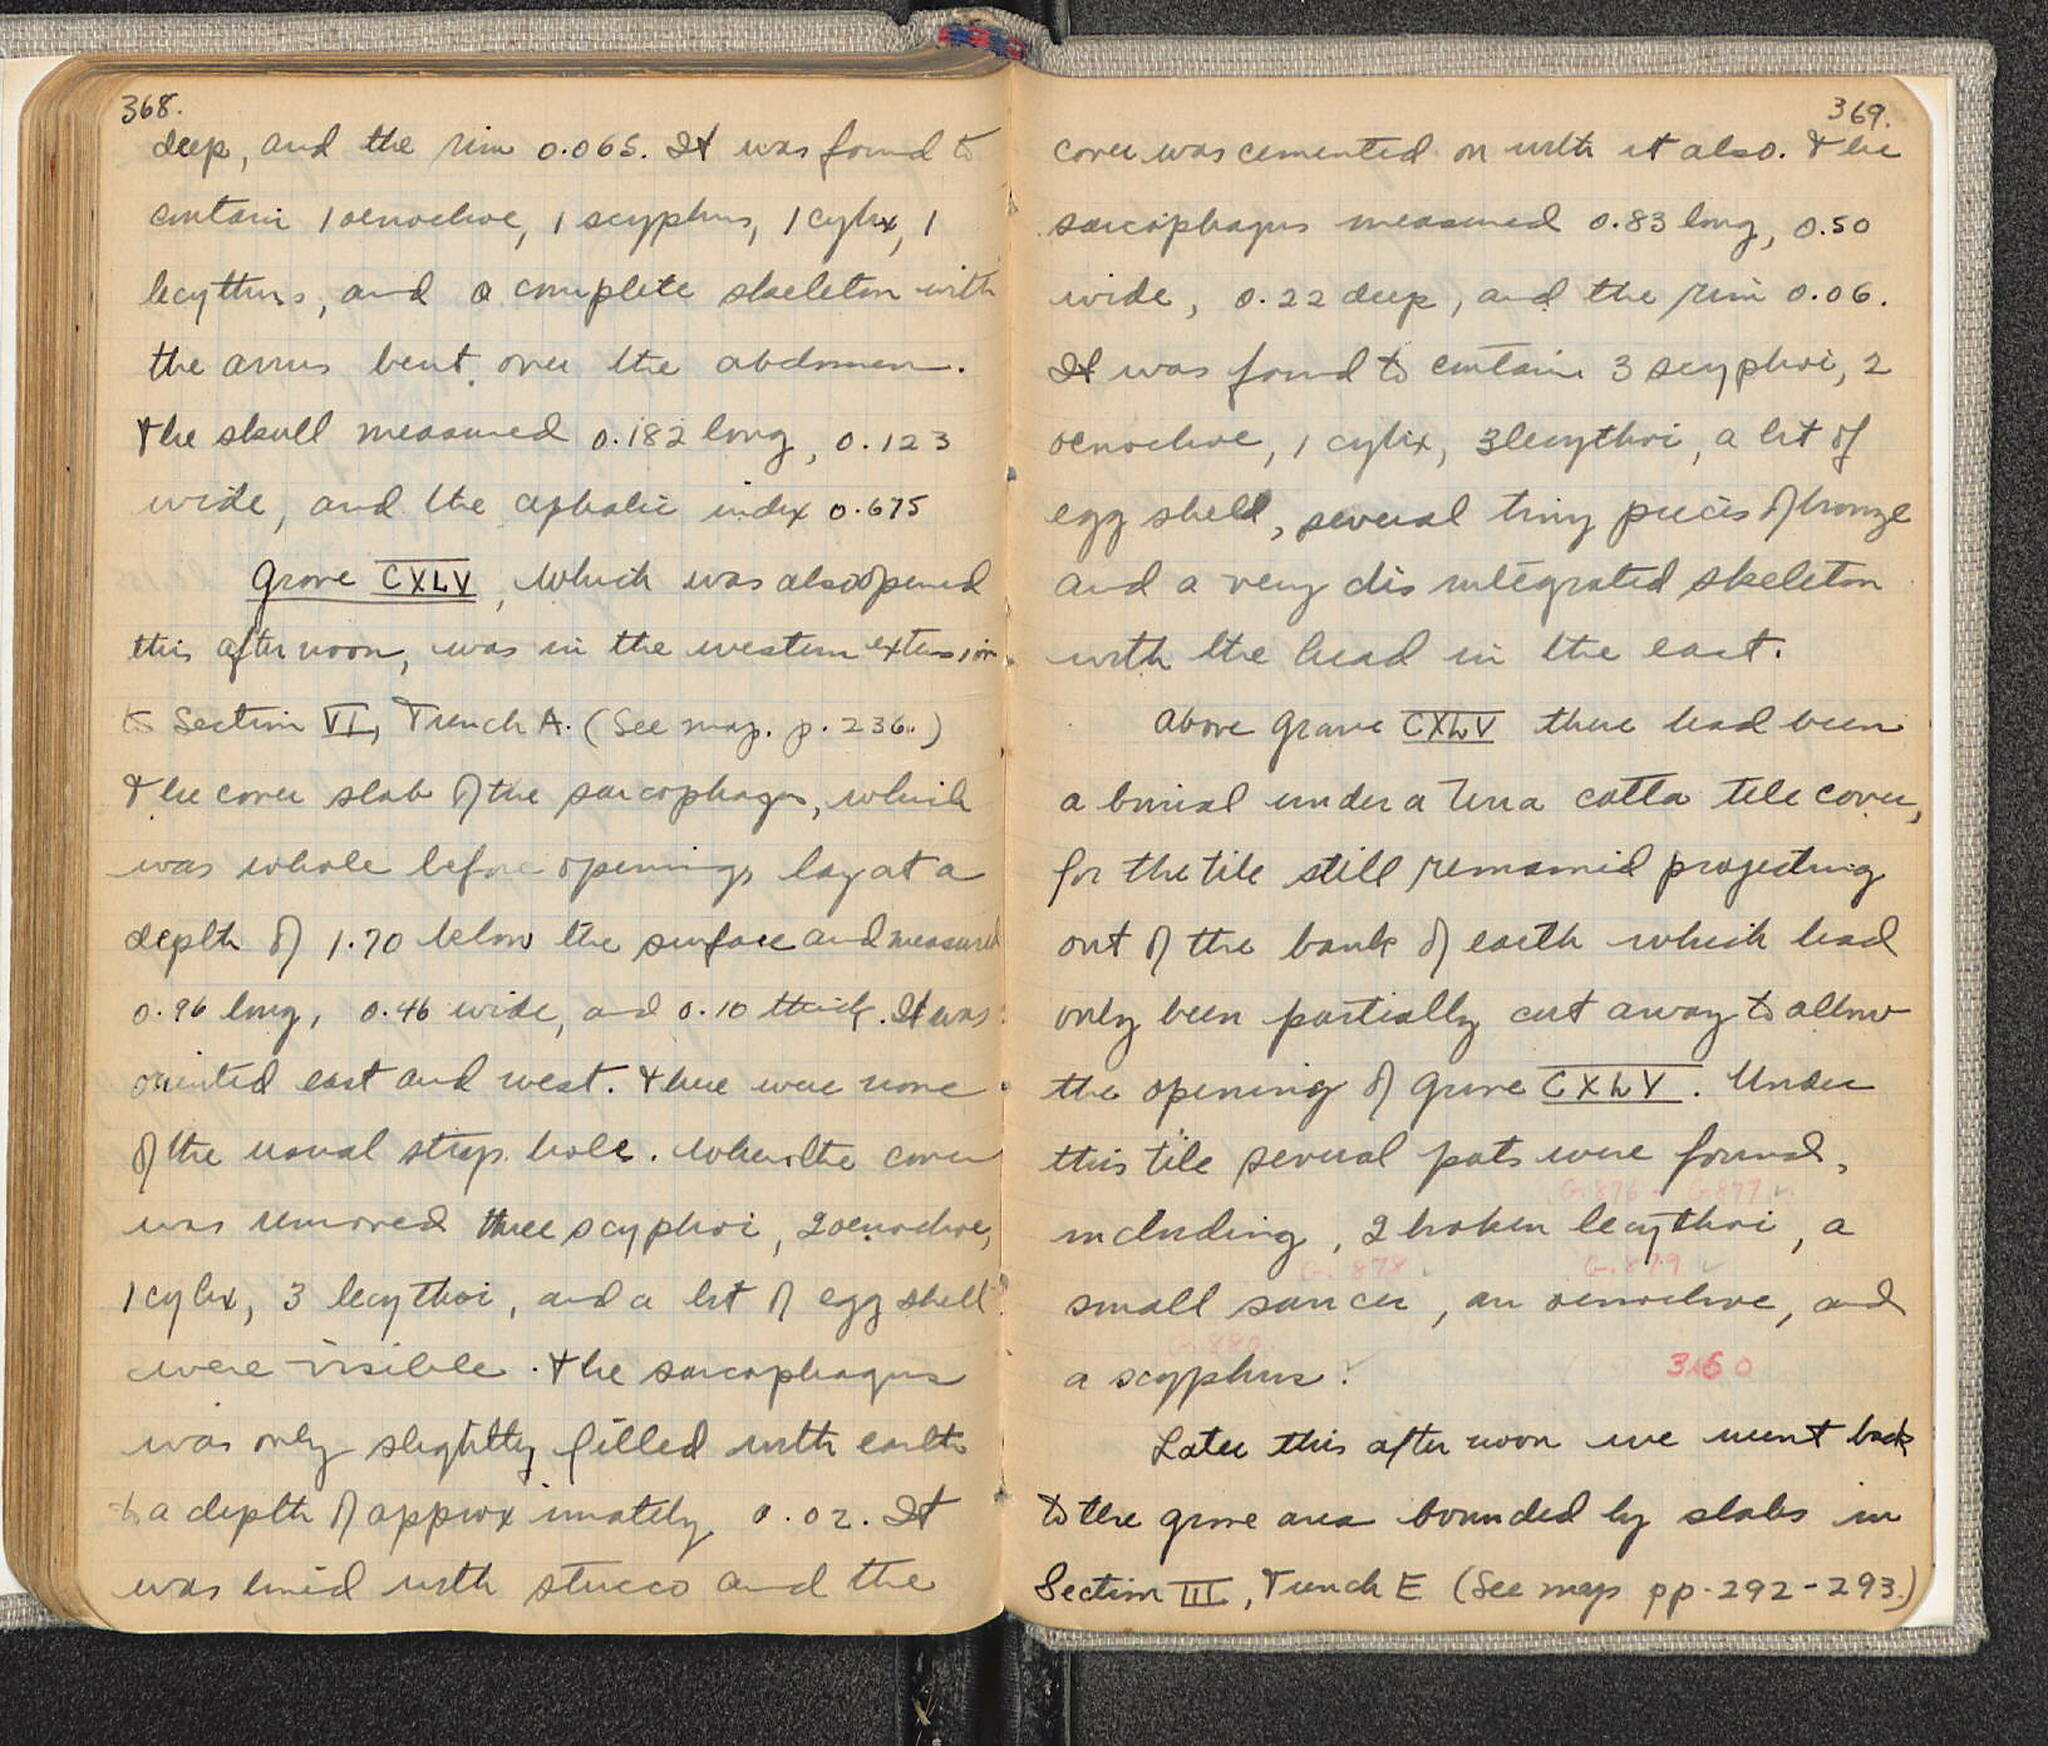 368.
deep, and the rim 0.065. It was found to
contain 1 oenochoe, 1 scyphus, 1 cylix, 1
lecythus, and a complete skeleton with
the arms bent over the abdomen.
The skull measured 0.182 long, 0.123
wide, and the cephalic index 0.675
Grave CXLV, which was also opened
this afternoon, was in the western extension
to Section VI, Trench A. (See map. p. 236.)
The cover slab of the sarcophagus, which
was whole before opening, lay at a
depth of 1.70 below the surface and measured
0.96 long, 0.46 wide, and 0.10 thick. It was
oriented east and west. There were none
of the usual strap holes. When the cover
was removed three scyphoi, 2 oenochoe,
1 cylix, 3 lecythoi, and a bit of egg shell
were visible. The sarcophagus
was only slightly filled with earth
to a depth of approximately 0.02. It
was lined with stucco and the
369.
cover was cemented on with it also. The
sarcophagus measured 0.83 long, 0.50
wide, 0.22 deep, and the rim 0.06.
It was found to contain 3 scyphoi, 2
oenochoe, 1 cylix, 3 lecythoi, a bit of
egg shell, several tiny pieces of bronze
and a very disintegrated skeleton
with the head in the east.
Above grave CXLV there had been
a burial under a terra cotta tile cover,
for the tile still remained projecting
out of the bank of earth which had
only been partially cut away to allow
the opening of grave CXLV. Under
this tile several pots were found,
G.876 - G877
including, 2 broken lecythoi, a
G. 878 G.879
small saucer, an oenochoe, and
G.880
a scyphus. 360
Later this afternoon we went back
to the grave area bounded by slabs in
Section III, Trench E (See map pp. 292-293.)